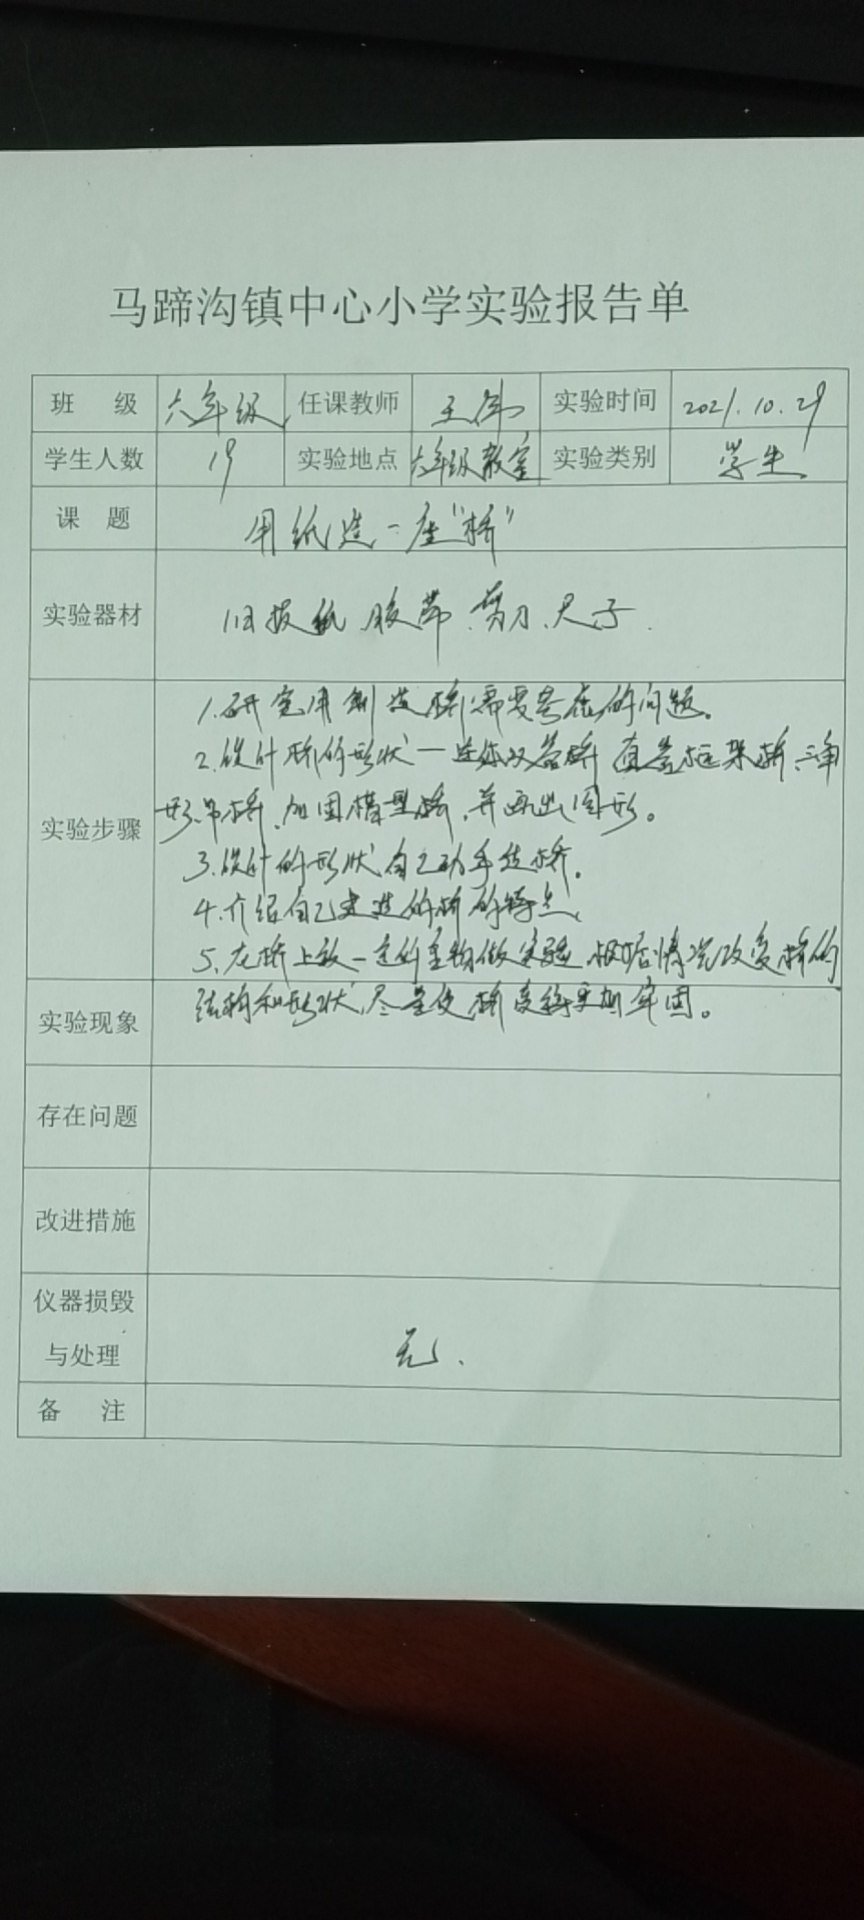 马蹄沟镇中心小学实验报告单
班 级 六年级 任课教师 王伟 实验时间 2021.10.29
学生人数 19 实验地点 六年级教室 实验类别 学生
课 题 用纸造一座“桥”
实验器材 旧报纸 胶带、剪刀、尺子.
1.研究用制造桥需要考虑的问题。
2.设计桥的形状—连体双 桥 直 框架桥、三角
实验步骤 形吊桥、加固模型桥,并画出图形。
3.设计的形状自己动手造桥。
4.介绍自己建造的桥的特点
5.在桥上放一定的重物做实验,根据情况改变桥的
实验现象 结构和形状,尽量使桥变得更加牢固。
存在问题
改进措施
仪器损毁
与处理 无.
备 注